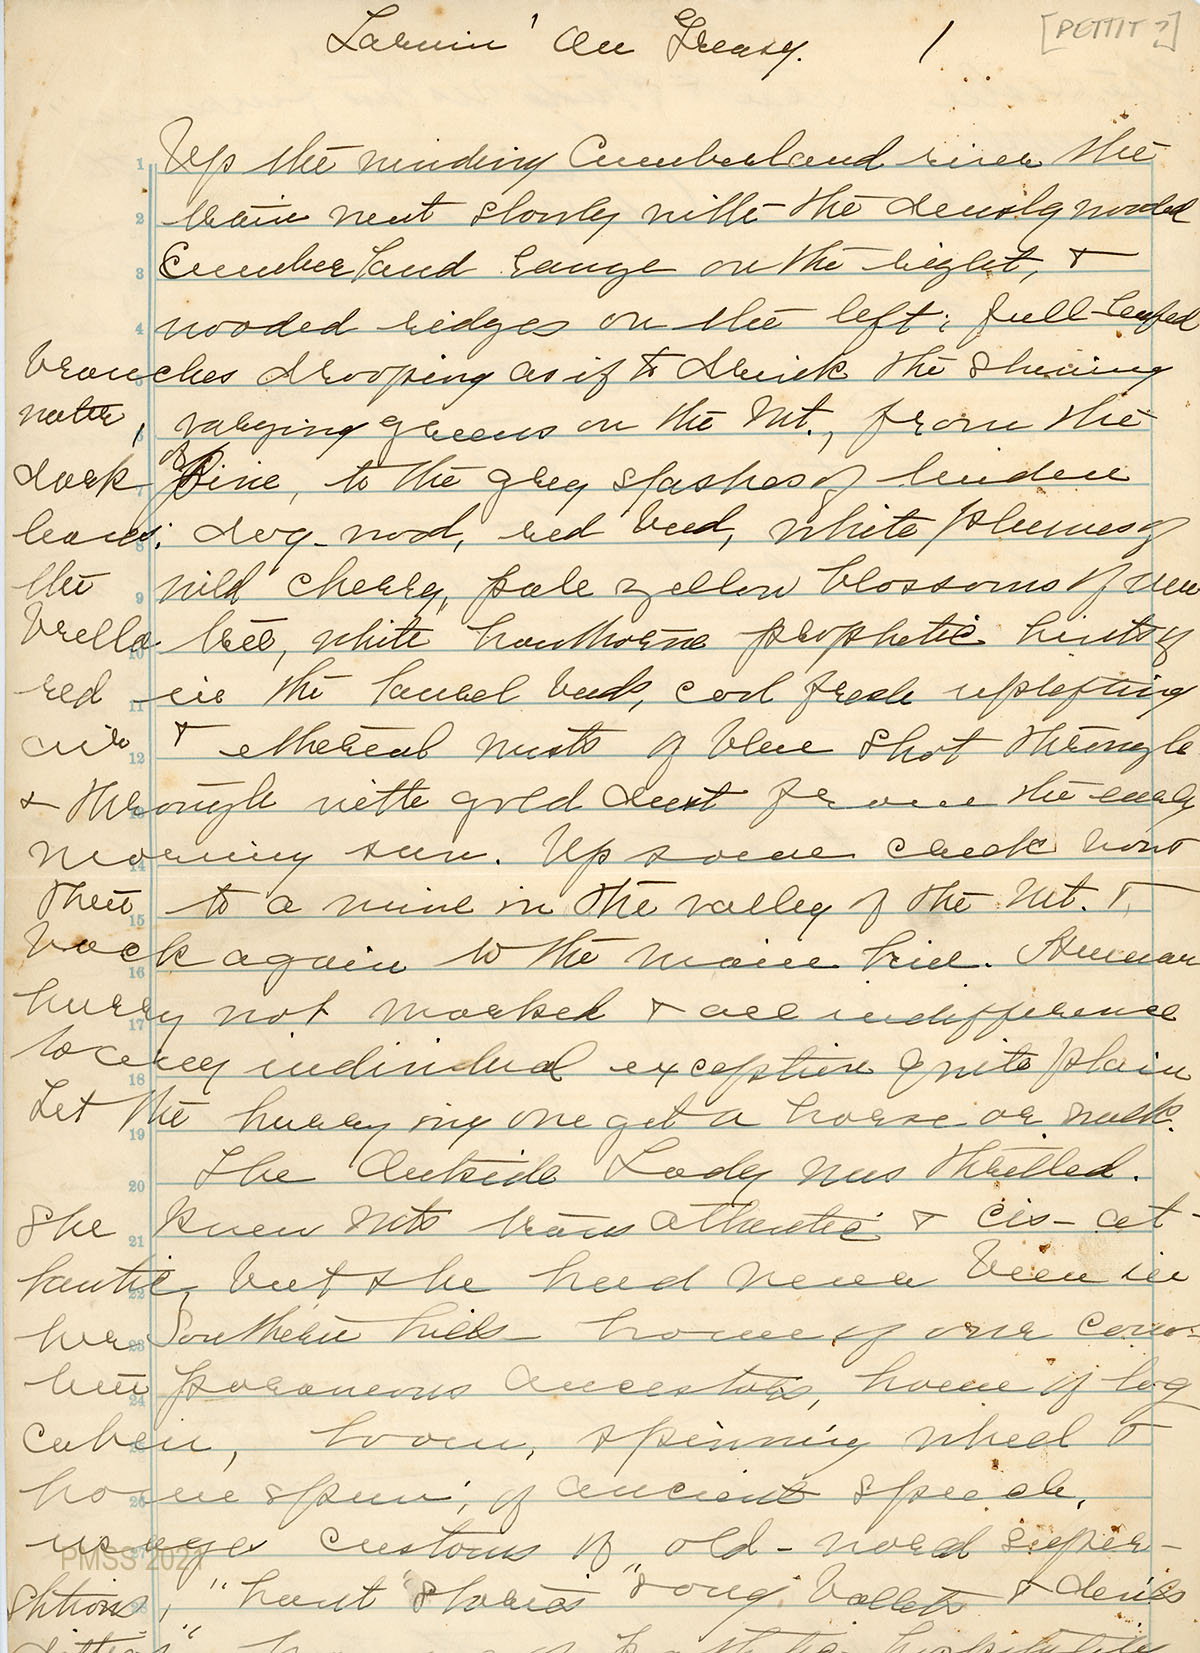 Larnin' On Greasy. 1 [PETTIT?]
Up the winding Cumberland river the
train went slowly with the densly wooded
Cumberland range on the right, &
wooded ridges on the left; full-leafed
branches drooping as if to drink the shining
water, varying greens on the Mt., from the
dark of Pine, to the grey splashes of linden
leaves; dog-wood, red bud, white plumes of
the wild cherry, pale yellow blossoms of um
brella tree, white hawthorne prophetic hints of
red in the laurel buds, cool fresh uplifting
air & ethereal mists of blue shot through
& through with gold dust from the early
morning sun. Up some creek
then to a mine in the valley of the Mt. &
back again to the main line. Human
hurry not marked & all indifference
to any individual exception quite plain
Let the hurrying one get a horse or walk.
The Outside Lady was thrilled.
She knew Mts trans atlantic & cis-at-
lantic, but she had never been in
her Southern hills - home of our con-
tem poraneous ancestors, home of log
cabin, loom, spinning wheel &
home spun; of ancient speech,
usages customs of old-word super-
stitions, "hant stories" "song ballets & devils
ditties"
PMSS 2021